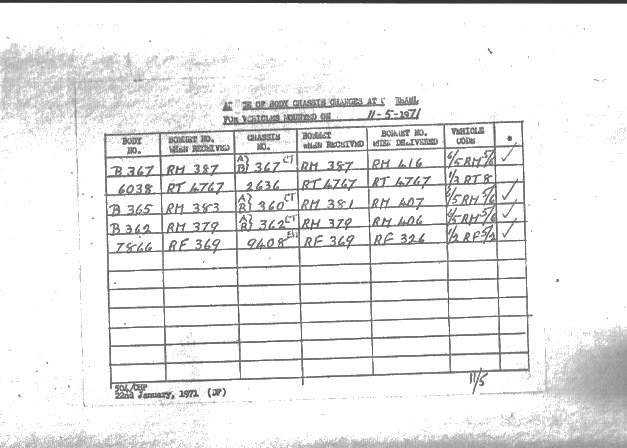 OF BODY CHASSIS CHANGES AT
FOR VEHICLES MOUNTED ON 11-5-1971
BODY NO. BONNET NO. WHEN RECEIVED CHASSIS NO. BONNET WHEN RECEIVED BONNET NO. WHEN DELIVERED VEHICLE CODE
B 367 RM 387 A) B) 367 CT RM 387 RM 416 6/5 RM 5/6 ✓
6038 RT 4767 2636 RT 4767 RT 4767 1/3 RT 8
B 365 RM 383 A) B) 360 CT RM 381 RM 407 6/5 RM 5/6 ✓
B 362 RM 379 A) B) 362 CT RM 379 RM 406 6/5 RM 5/6 ✓
7866 RF 369 9408 RF 369 RF 326 1/2 RF 5/2 ✓
504/CHP
22nd January, 1971 (DF)
11/5